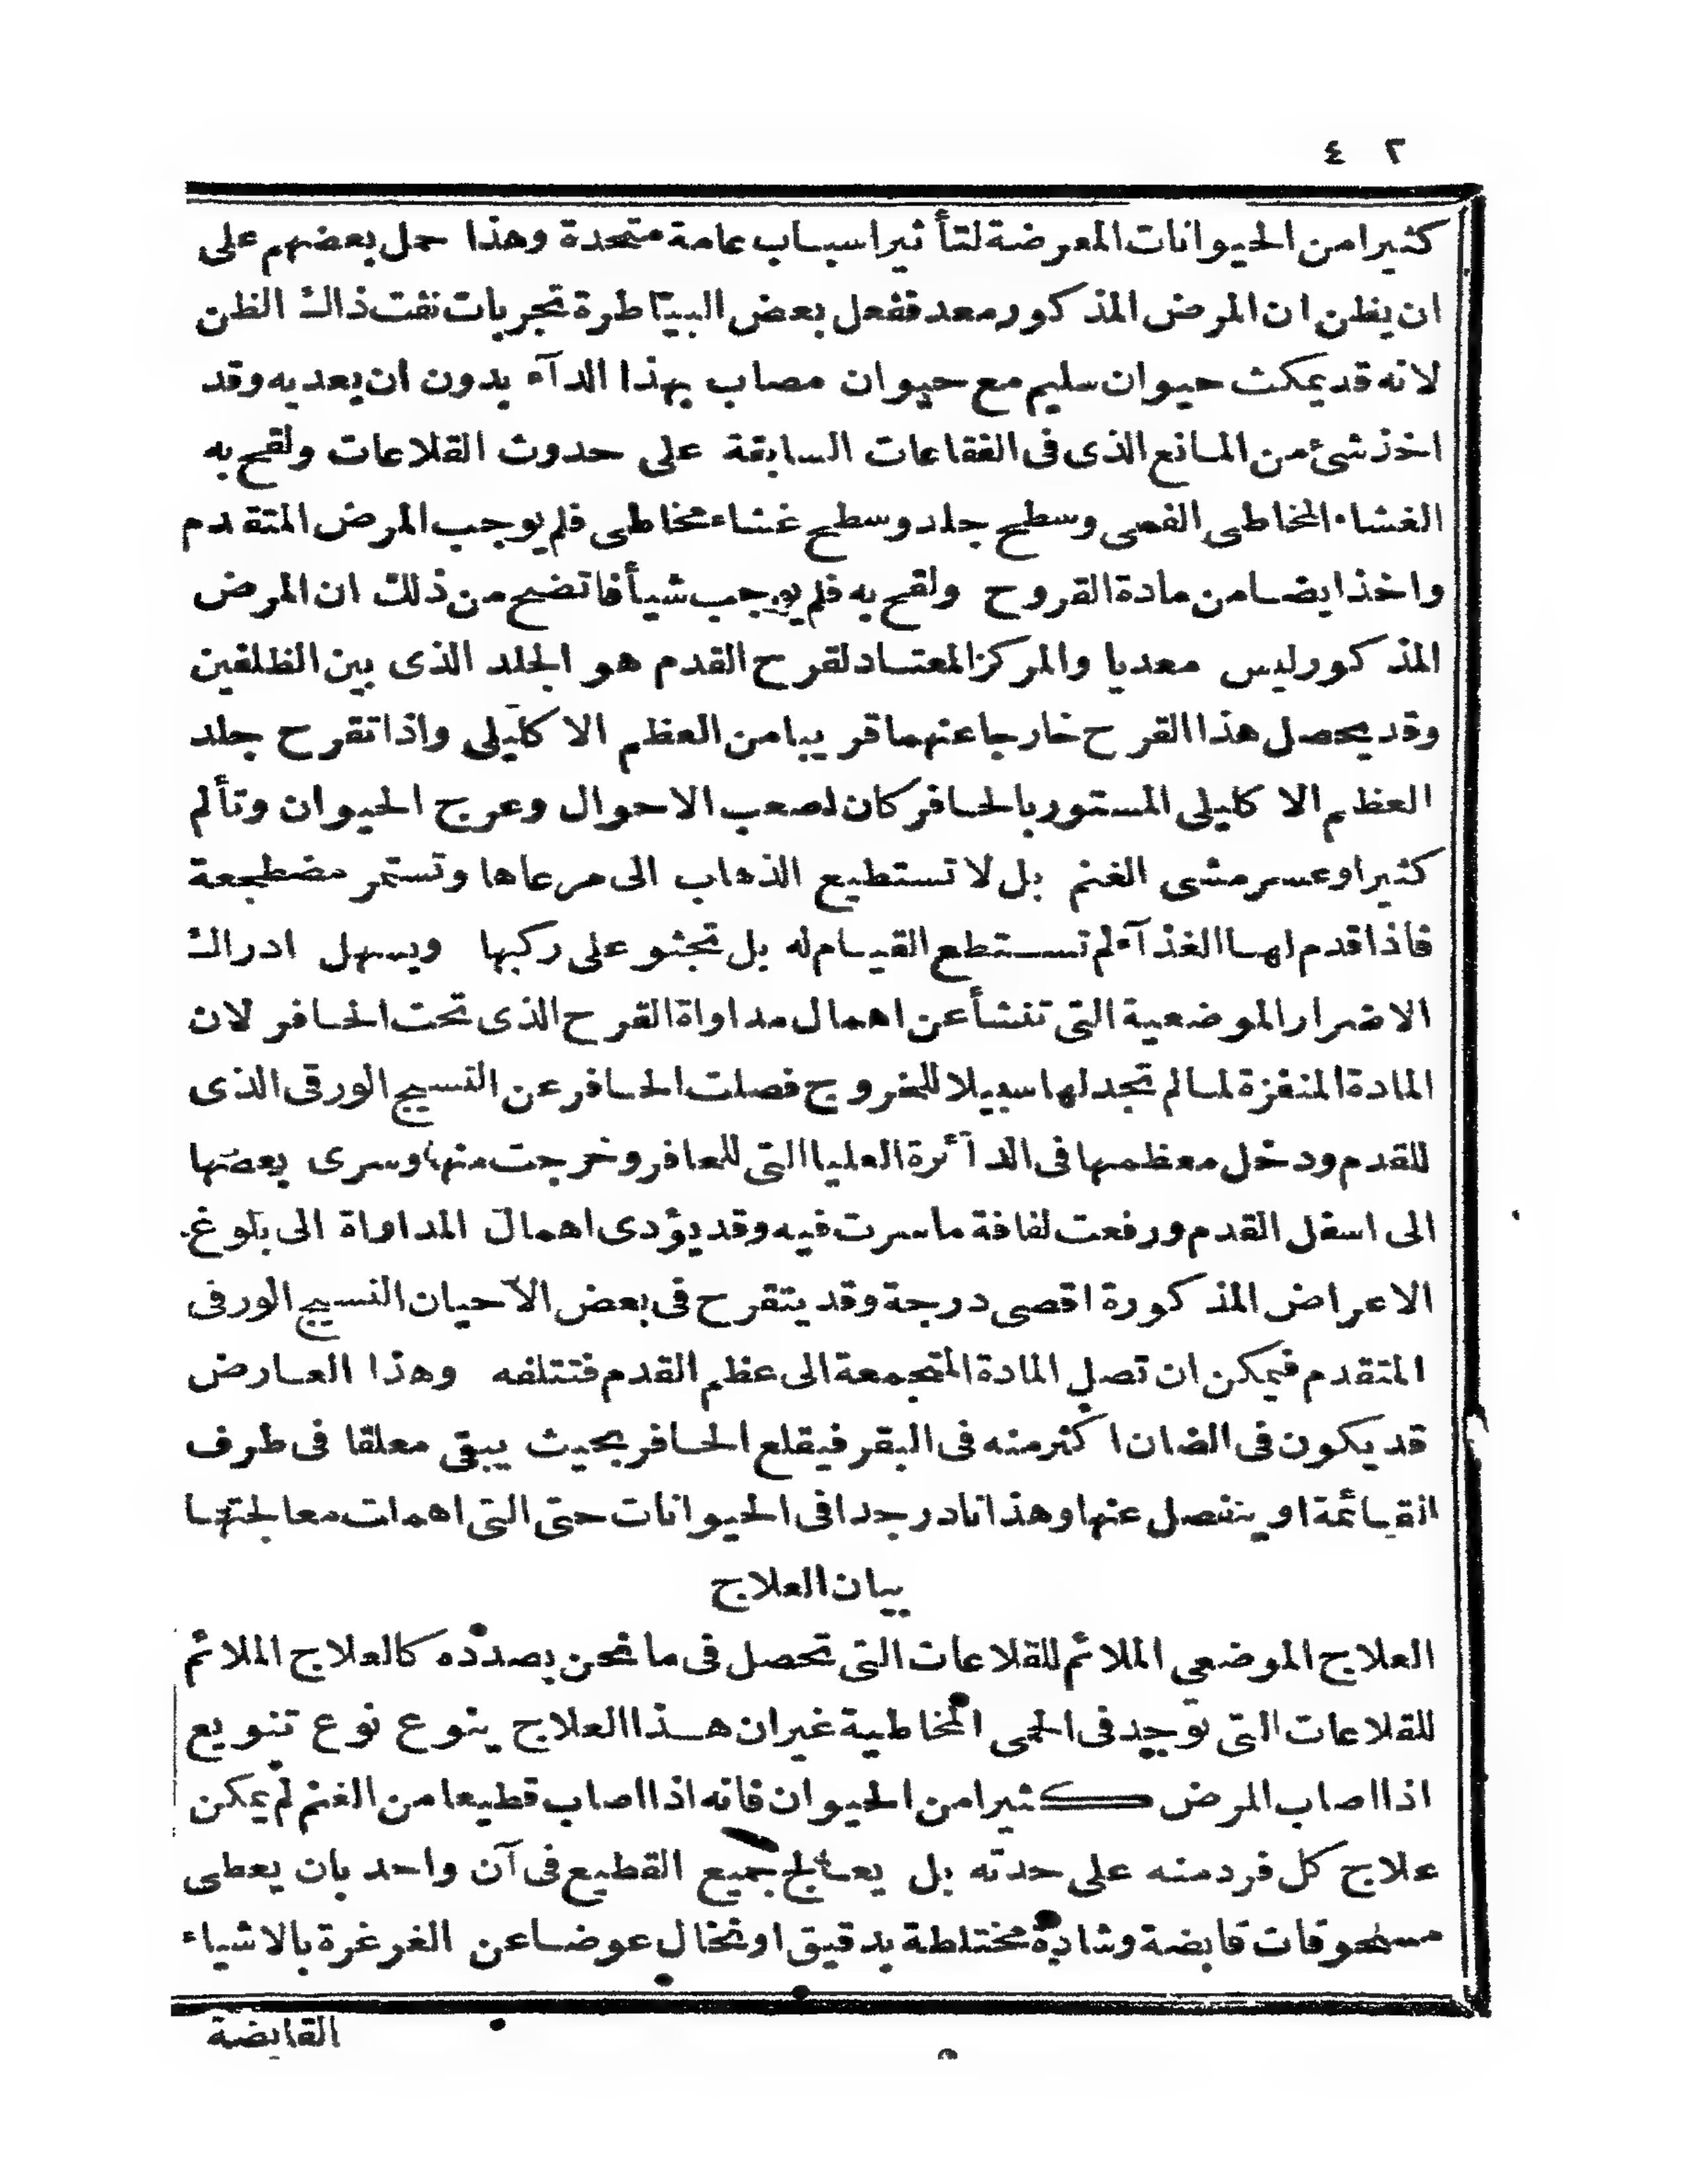 ٤ ٢
كثيرا من الحيوانات المعرضة لتأثير اسباب عامة متحدة وهذا حمل بعضهم على
ان يظن ان المرض المذكور معد ففعل بعض البياطرة تجربات نفت ذاك الظن
لانه قد يمكث حيوان سليم مع حيوان مصاب بهذا الدآء بدون ان يعديه وقد
اخذ شئ من المائع الذى فى الفقاعات السابقة على حدوث القلاعات ولقح به
الغشاء المخاطى الفمى وسطح جلد وسطح غشاء مخاطى فلم يوجب المرض المتقدم
واخذ ايضا من مادة القروح ولقح به فلم يوجب شيأ فاتضح من ذلك ان المرض
المذكور ليس معديا والمركز المعتاد لقرح القدم هو الجلد الذى بين الظلفين
وقد يحصل هذا القرح خارجا عنهما قريبا من العظم الاكليلى واذا تقرح جلد
العظم الاكليلى المستور بالحافر كان اصعب الاحوال وعرج الحيوان وتألم
كثيرا وعسر مشى الغنم بل لا تستطيع الذهاب الى مرعاها وتستمر مضطجعة
فاذا قدم لها الغذآء لم تستطع القيام له بل تجثو على ركبها ويسهل ادراك
الاضرار الموضعية التى تنشأ عن اهمال مداواة القرح الذى تحت الحافر لان
المادة المنفرزة لما لم تجد لها سبيلا للخروج فصلت الحافر عن النسيج الورقى الذى
للقدم ودخل معظمها فى الدآئرة العليا التى للحافر وخرجت منها وسرى بعضها
الى اسفل القدم ورفعت لفافة ما سرت فيه وقد يؤدى اهمال المداواة الى بلوغ
الاعراض المذكورة اقصى درجة وقد يتقرح فى بعض الاحيان النسيج الورقى
المتقدم فيمكن ان تصل المادة المتجمعة الى عظم القدم فتتلفه وهذا العارض
قد يكون فى الضان اكثر منه فى البقر فيقلع الحافر بحيث يبقى معلقا فى طرف
القائمة او ينفصل عنها وهذا نادر جدا فى الحيوانات حتى التى اهملت معالجتها
بيان العلاج
العلاج الموضعى الملائم للقلاعات التى تحصل فى ما نحن بصدده كالعلاج الملائم
للقلاعات التى توجد فى الحمى المخاطية غير ان هذا العلاج ينوع نوع تنويع
اذا اصاب المرض كثيرا من الحيوان فانه اذا اصاب قطيعا من الغنم لم يمكن
علاج كل فرد منه على حدته بل يعالج جميع القطيع فى آن واحد بان يعطى
مسحوقات قابضة وشادة مختلطة بدقيق او نخال عوضا عن الغرغرة بالاشياء
القابضة